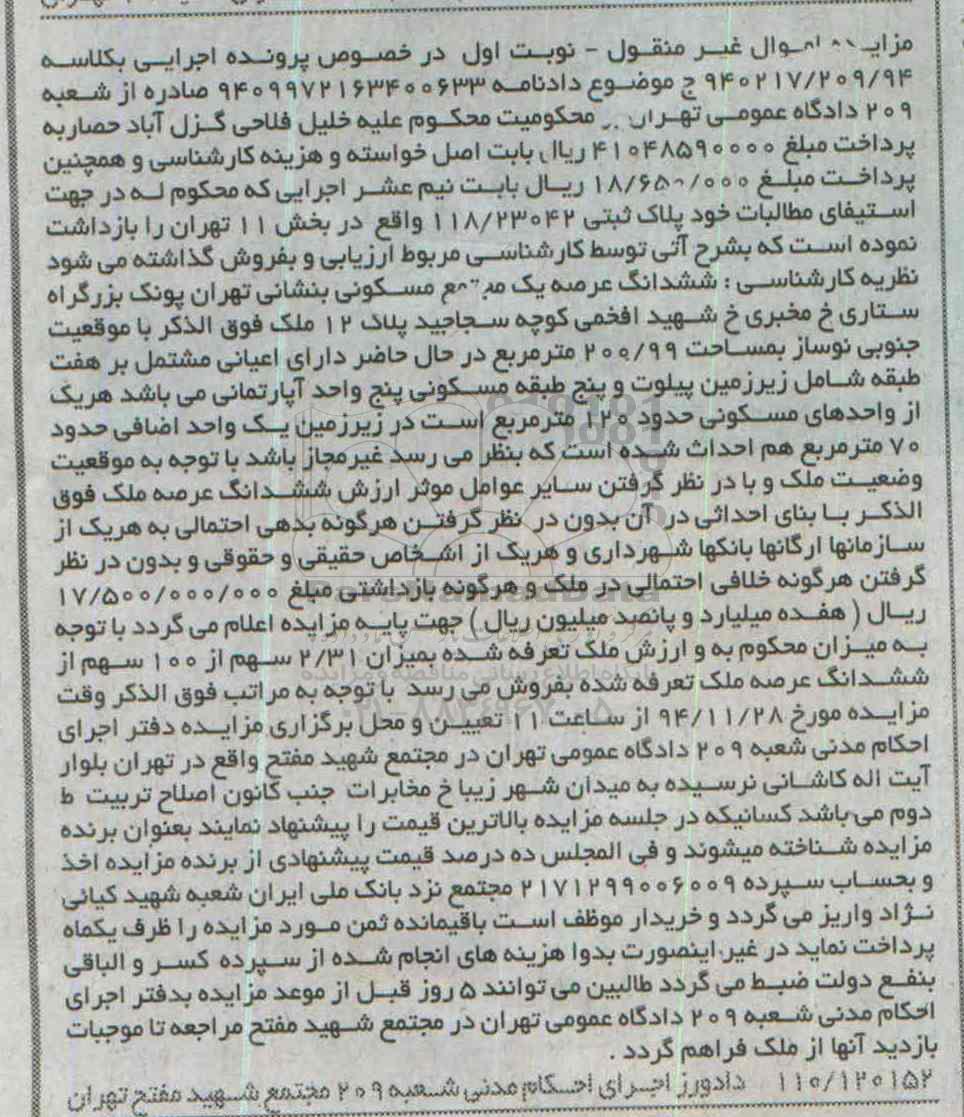 مزایده اموال غیر منقول - نوبت اول در خصوص پرونده اجرایی بکلاسه
۹۴۰۲۱۷/۲۰۹/۹۴ ج موضوع دادنامه ۹۴۰۹۹۷۲۱۶۳۴۰۰۶۳۳ صادره از شعبه
۲۰۹ دادگاه عمومی تهران بر محکومیت محکوم علیه خلیل فلاحی گزل آباد حصاربه
پرداخت مبلغ ۴۱۰۴۸۵۹۰۰۰۰ ریال بابت اصل خواسته و هزینه کارشناسی و همچنین
پرداخت مبلغ ۱۸/۶۵۰/۰۰۰ ریال بابت نیم عشر اجرایی که محکوم له در جهت
استیفای مطالبات خود پلاک ثبتی ۱۱۸/۲۳۰۴۲ واقع در بخش ۱۱ تهران را بازداشت
نموده است که بشرح آتی توسط کارشناسی مربوط ارزیابی و بفروش گذاشته می شود
نظریه کارشناسی : ششدانگ عرصه یک مجتمع مسکونی بنشانی تهران پونک بزرگراه
ستاری خ مخبری خ شهید افخمی کوچه سجاجید پلاک ۱۲ ملک فوق الذکر با موقعیت
جنوبی نوساز بمساحت ۲۰۰/۹۹ مترمربع در حال حاضر دارای اعیانی مشتمل بر هفت
طبقه شامل زیرزمین پیلوت و پنج طبقه مسکونی پنج واحد آپارتمانی می باشد هریک
از واحدهای مسکونی حدود ۱۲۰ مترمربع است در زیرزمین یک واحد اضافی حدود
۷۰ مترمربع هم احداث شده است که بنظر می رسد غیرمجاز باشد با توجه به موقعیت
وضعیت ملک و با در نظر گرفتن سایر عوامل موثر ارزش ششدانگ عرصه ملک فوق
الذکر با بنای احداثی در آن بدون در نظر گرفتن هرگونه بدهی احتمالی به هریک از
سازمانها ارگانها بانکها شهرداری و هریک از اشخاص حقیقی و حقوقی و بدون در نظر
گرفتن هرگونه خلافی احتمالی در ملک و هرگونه بازداشتی مبلغ ۱۷/۵۰۰/۰۰۰/۰۰۰
ریال ( هفده میلیارد و پانصد میلیون ریال ) جهت پایه مزایده اعلام می گردد با توجه
به میزان محکوم به و ارزش ملک تعرفه شده بمیزان ۲/۳۱ سهم از ۱۰۰ سهم از
ششدانگ عرصه ملک تعرفه شده بفروش می رسد با توجه به مراتب فوق الذکر وقت
مزایده مورخ ۹۴/۱۱/۲۸ از ساعت ۱۱ تعیین و محل برگزاری مزایده دفتر اجرای
احکام مدنی شعبه ۲۰۹ دادگاه عمومی تهران در مجتمع شهید مفتح واقع در تهران بلوار
آیت اله کاشانی نرسیده به میدان شهر زیبا خ مخابرات جنب کانون اصلاح تربیت ط
دوم می باشد کسانیکه در جلسه مزایده بالاترین قیمت را پیشنهاد نمایند بعنوان برنده
مزایده شناخته میشوند و فی المجلس ده درصد قیمت پیشنهادی از برنده مزایده اخذ
و بحساب سپرده ۲۱۷۱۲۹۹۰۰۶۰۰۹ مجتمع نزد بانک ملی ایران شعبه شهید کیائی
نژاد واریز می گردد و خریدار موظف است باقیمانده ثمن مورد مزایده را ظرف یکماه
پرداخت نماید در غیر اینصورت بدوا هزینه های انجام شده از سپرده کسر و الباقی
بنفع دولت ضبط می گردد طالبین می توانند ۵ روز قبل از موعد مزایده بدفتر اجرای
احکام مدنی شعبه ۲۰۹ دادگاه عمومی تهران در مجتمع شهید مفتح مراجعه تا موجبات
بازدید آنها از ملک فراهم گردد .
۱۱۰/۱۲۰۱۵۲ دادورز اجرای احکام مدنی شعبه ۲۰۹ مجتمع شهید مفتح تهران